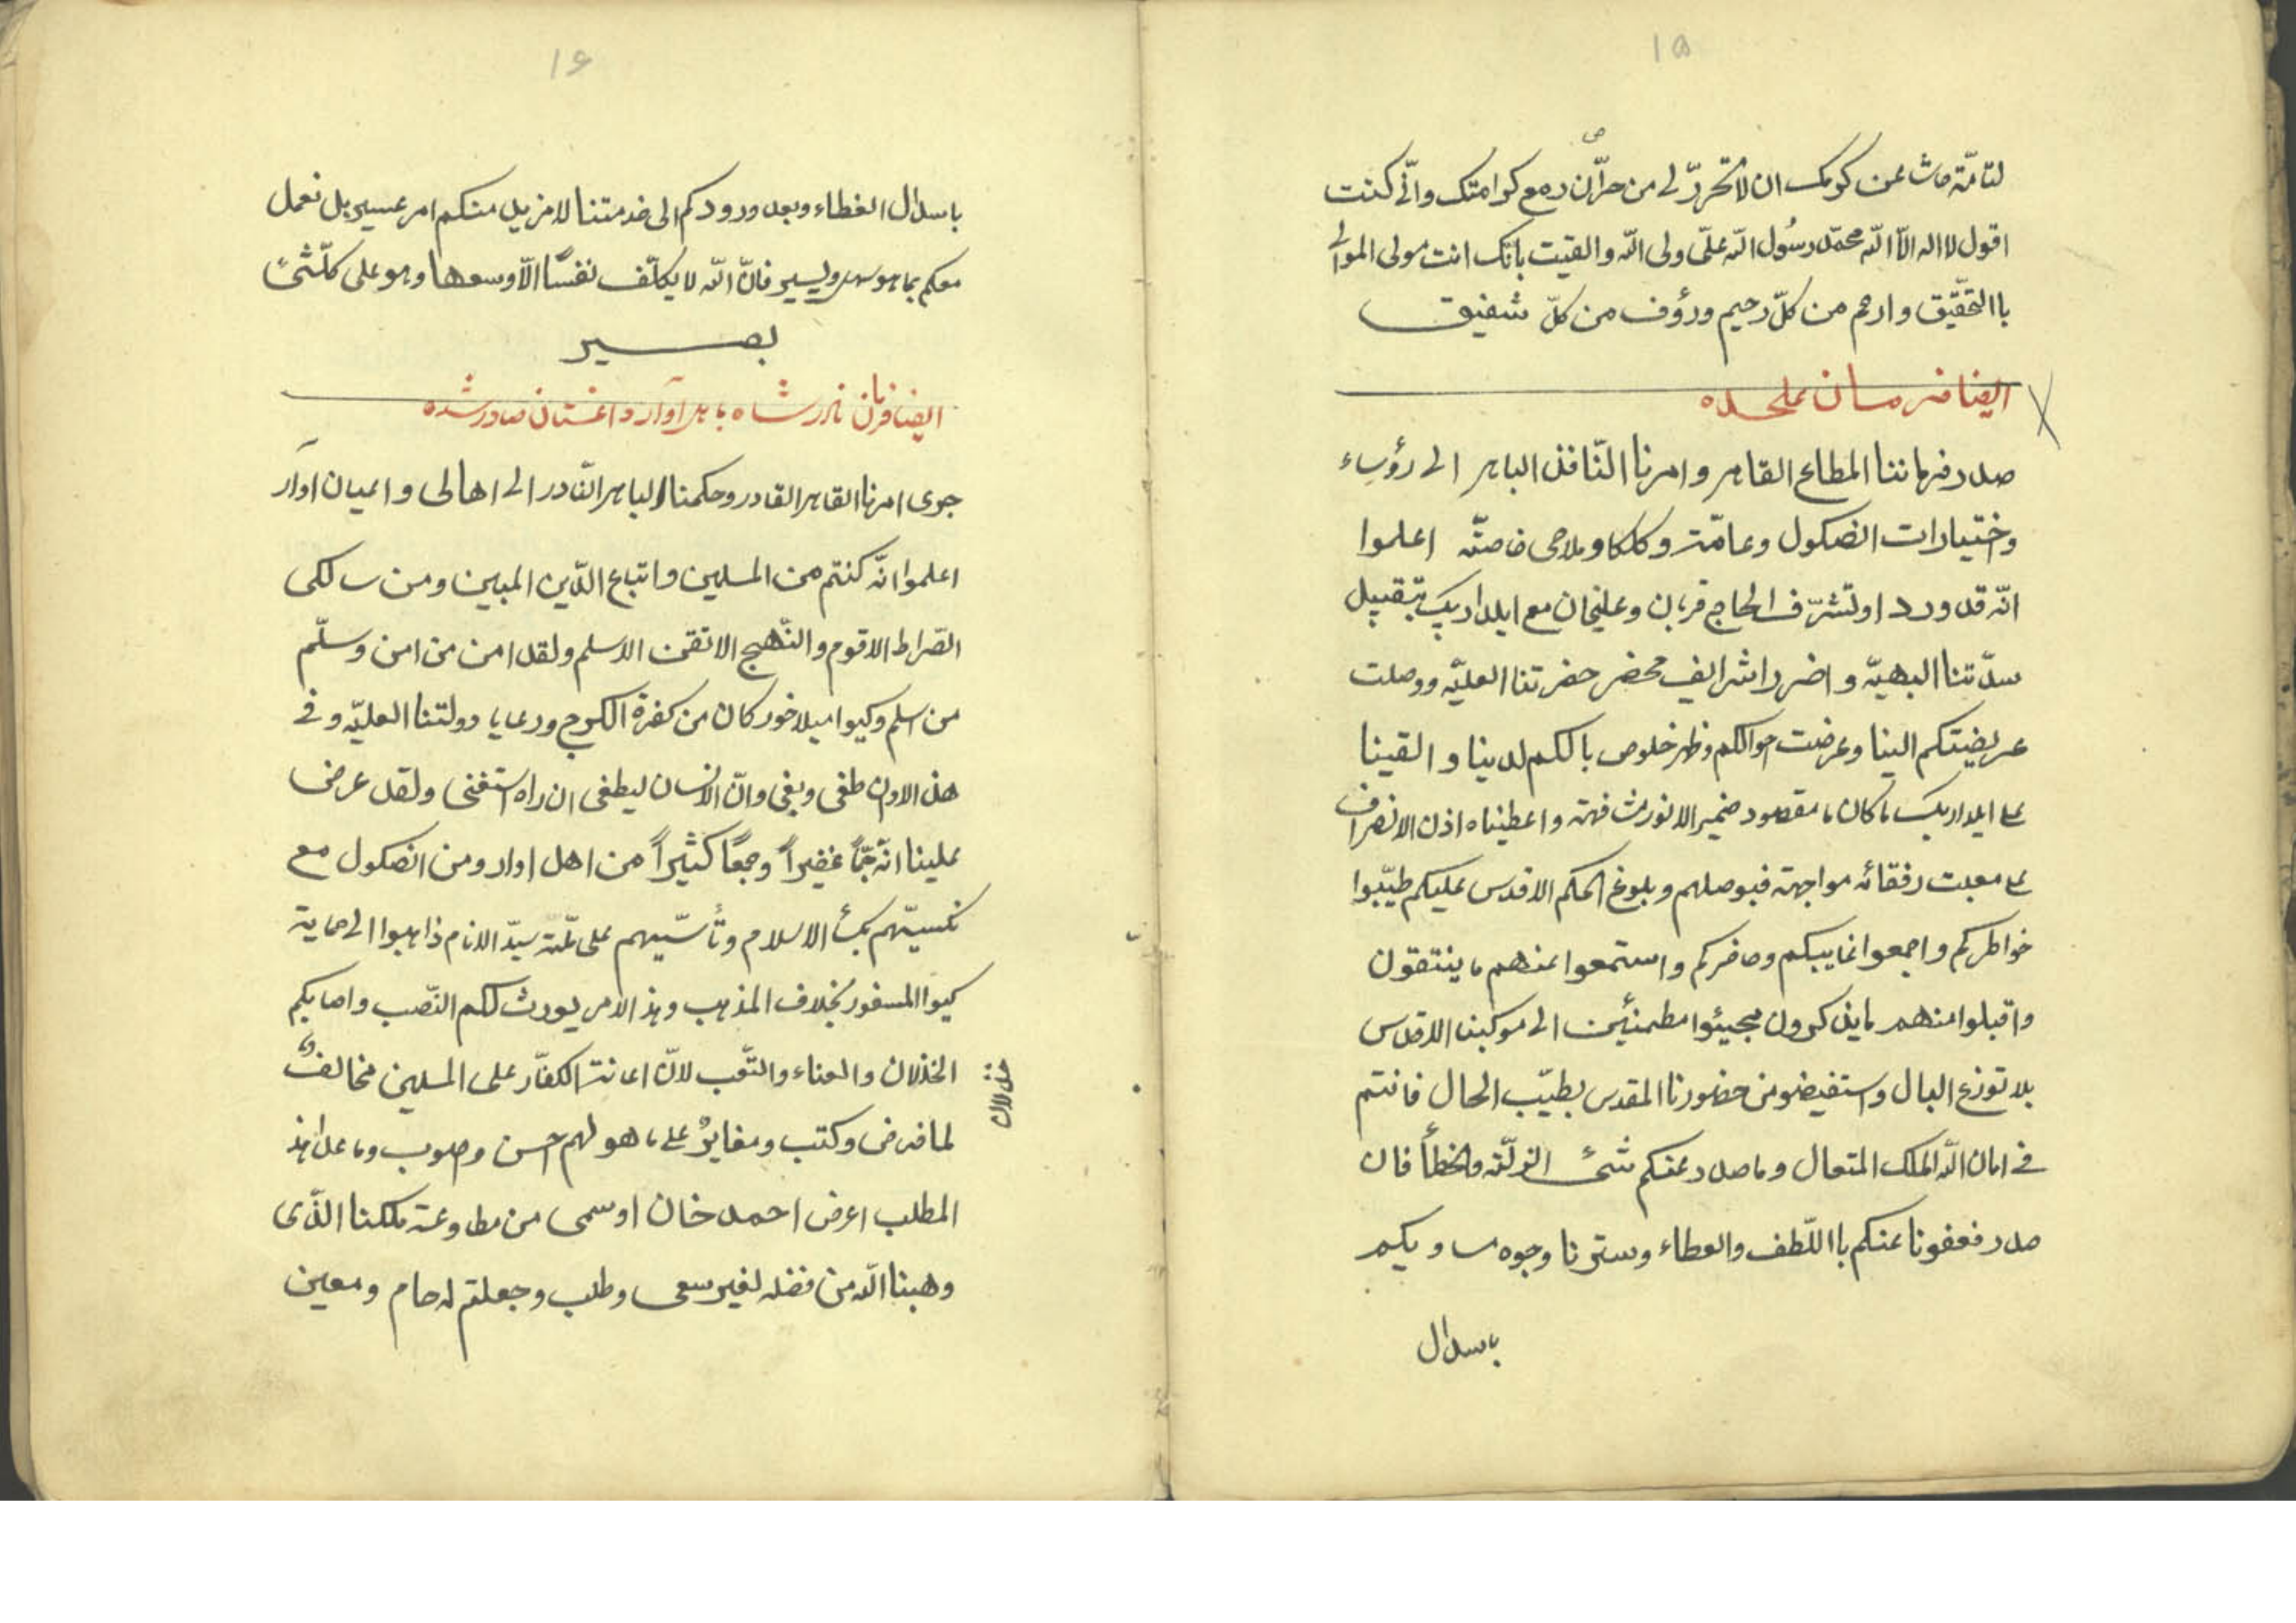 ١٥
لتامّة حاشا عن كرمك ان لا تحرر لى من حرّان دمع كرامتك وانّى كنت
اقول لا اله الّا الله محمّد رسُول الله علىّ ولى الله والقيت بانّك انت مولى الموالى
باالتحقّيق وارحم من كلّ رحيم ورؤف من كلّ شفيق
ايضا فرمان علحده
صدر فرماننا المطاع القاهر وامرنا النّافذ الباهر الى رؤساء
وختيارات انصكول وعامّتر وكلكا وملاحى خاصّته اعلموا
انّه قد ورد اوتشرّف الحاج قربان وعليخان مع ايلدار بيك بتقبيل
سدّتنا البهيّه واضر اشرايف محضر حضرتنا العليّه ووصلت
عريضتكم الينا وعرضت احوالكم وظهر خلوص بالكم لدينا والقينا
على ايلدار بيك ما كان ما مقصود ضمير الانور مشافهة واعطيناه اذن الانصراف
على معيت رفقائه مواجهة فبوصلهم وبلوغ الحكم الاقدس عليكم طيّبوا
خواطركم واجمعوا غايبكم وحاضركم واستمعوا عنهم ما ينتقون
واقبلوا منهم ما يذكرون مجيئوا مطمئنّين الى موكبنا الاقدس
بلا توزع البال واستفيضو من حضورنا المقدس بطيّب الحال فانتم
فى امان الله الملك المتعال وما صدر عنكم شئ الزلّة والخطأ فان
صدر فعفونا عنكم باالّلطف والعطاء وسترنا وجوه مساويكم
باسدال
١٦
باسدال الغطاء وبعد ورودكم الى خدمتنا لا نزيل منكم امر عسير بل نعمل
معكم بما هو سهل ويسير فانّ الله لا يكلّف نفسًا الّا وسعها وهو على كلّشئ
بصير
ايضا فرمان نادر شاه باهل آوار داغستان صادر شده
جرى امرنا القاهر القادر وحكمنا الباهر النّادر الى اهالى واعيان اوآر
اعلموا انّه كنتم من المسلمين واتباع الدّين المبين ومن سالكى
الصّراط الاقوم والنّهج الاتقن الاسلم ولقد امن من امن وسلّم
من اسلم وكيوا ميلاخور كان من كفرة الكرج ورعايا دولتنا العليّه وفى
هذ الاوان طغى وبغى وانّ الانسان ليطغى ان راه استغنى ولقد عرض
علينا انّه جمّاً غفيراً وجمعًا كثيراً من اهل اوار ومن انصكول مع
تكسيّهم بكسأ الاسلام وتأسّيهم على ملّة سيّد الانام ذاهبوا الى حماية
كيوا المسفور بخلاف المذهب وهذ الامر يورث لكم النّصب واصابكم
الخذلان والعناء والتّعب لانّ اعانة الكفّار على المسلمين مخالفٌ
لما فرض وكتب ومغايرٌ على ما هو لهم احسن وصوب وما عدا هذ
المطلب اعرض احمد خان اوسمى من مطاوعة ملكنا الذّى
وهبنا الله من فضله لغير سعى وطلب وجعلتم له حام ومعين